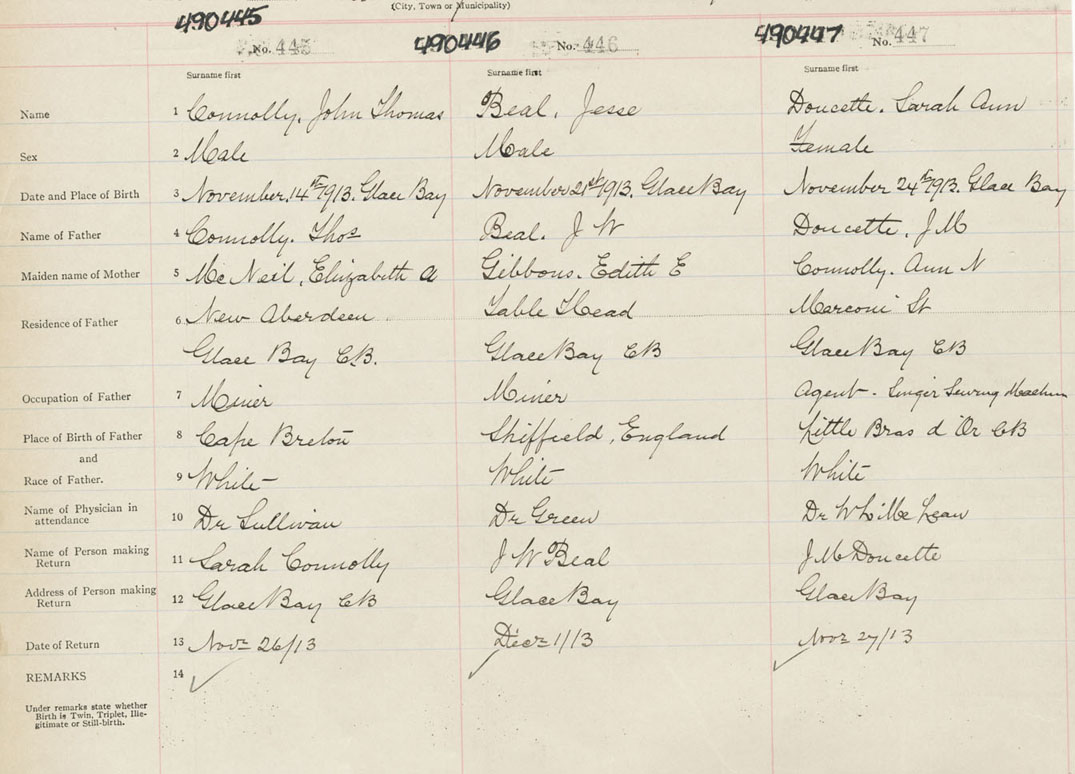 (City, Town or Municipality)
490445 490446 490447
No. 445 No. 446 No. 447
Surname first Surname first Surname first
Name 1 Connolly, John Thomas Beal, Jesse Doucette. Sarah Ann
Sex 2 Male Male Female
Date and Place of Birth 3 November 14th 1913. Glace Bay November 21st 1913. Glace Bay November 24th 1913. Glace Bay
Name of Father 4 Connolly. Thos Beal. J W Doucette, J M
Maiden name of Mother 5 McNeil, Elizabeth A Gibbons. Edith E Connolly. Ann N
Residence of Father 6 New Aberdeen Table Head Marconi St
Glace Bay CB. Glace Bay CB Glace Bay CB
Occupation of Father 7 Miner Miner Agent - Singer Sewing Machine
Place of Birth of Father 8 Cape Breton Shiffield, England Little Bras d'Or CB
and
Race of Father. 9 White White White
Name of Physician in
attendance 10 Dr Sullivan Dr Green Dr W L McLean
Name of Person making
Return 11 Sarah Connolly J W Beal J M Doucette
Address of Person making
Return 12 Glace Bay CB Glace Bay Glace Bay
Date of Return 13 Nov 26/13 Dec 1/13 Nov 27/13
REMARKS 14
Under remarks state whether
Birth is Twin, Triplet, Ille-
gitimate or Still-birth.